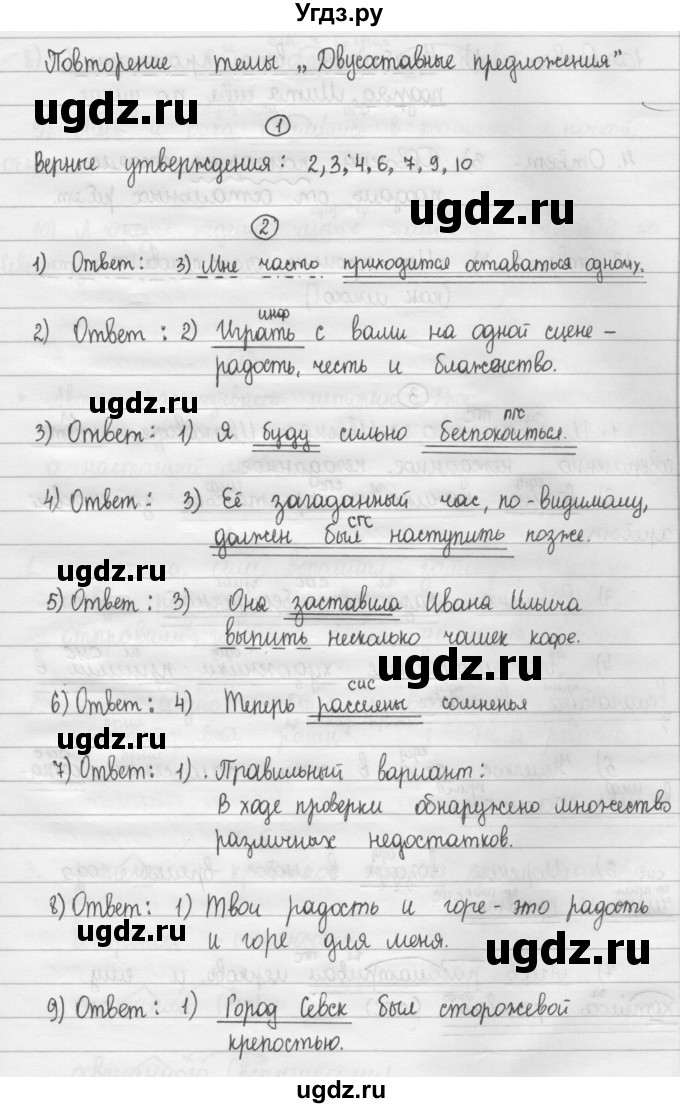 Угдз.ру
Повторение темы „Двусоставные предложения"
ugdz.ru
1
Верные утверждения: 2, 3, 4, 6, 7, 9, 10
ugdz.ru
2
1) Ответ: 3) Мне часто приходится оставаться одному.
инф
2) Ответ: 2) Играть с вами на одной сцене –
радость, честь и блаженство.
ugdz.ru
пгс
3) Ответ: 1) Я буду сильно беспокоиться.
4) Ответ: 3) Её загаданный час, по-видимому,
сгс
должен был наступить позже.
ugdz.ru
5) Ответ: 3) Она заставила Ивана Ильича
выпить несколько чашек кофе.
ugdz.ru
сис
6) Ответ: 4) Теперь рассеяны сомненья
ugdz.ru
7) Ответ: 1). Правильный вариант:
В ходе проверки обнаружено множество
различных недостатков.
8) Ответ: 1) Твои радость и горе - это радость
и горе для меня.
ugdz.ru
ugdz.ru
9) Ответ: 1) Город Севск был сторожевой
крепостью.
ugdz.ru